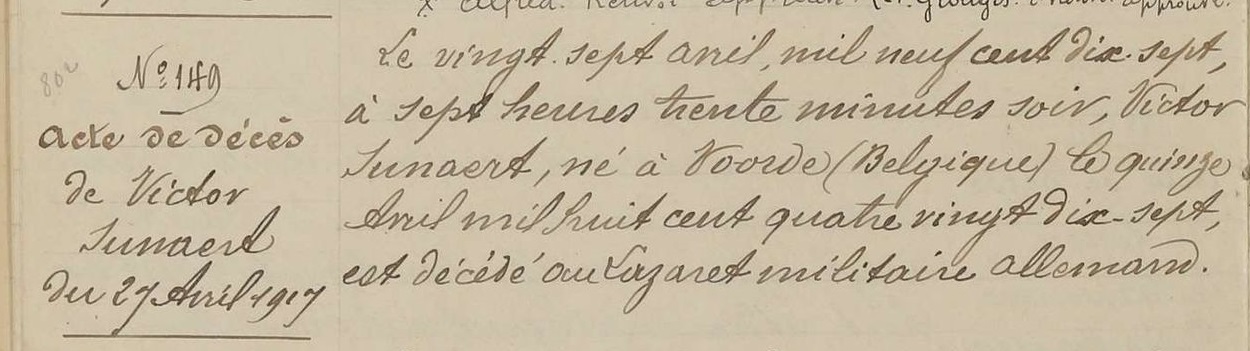 N° 149
acte de décès
de Victor
Sunaert
du 27 Avril 1917
Le vingt. sept avril, mil neuf cent dix. sept,
à sept heures trente minutes soir, Victor
Sunaert, né à Voorde (Belgique) le quinze
Avril mil huit cent quatre vingt dix-sept,
est décédé au Lazaret militaire allemand.